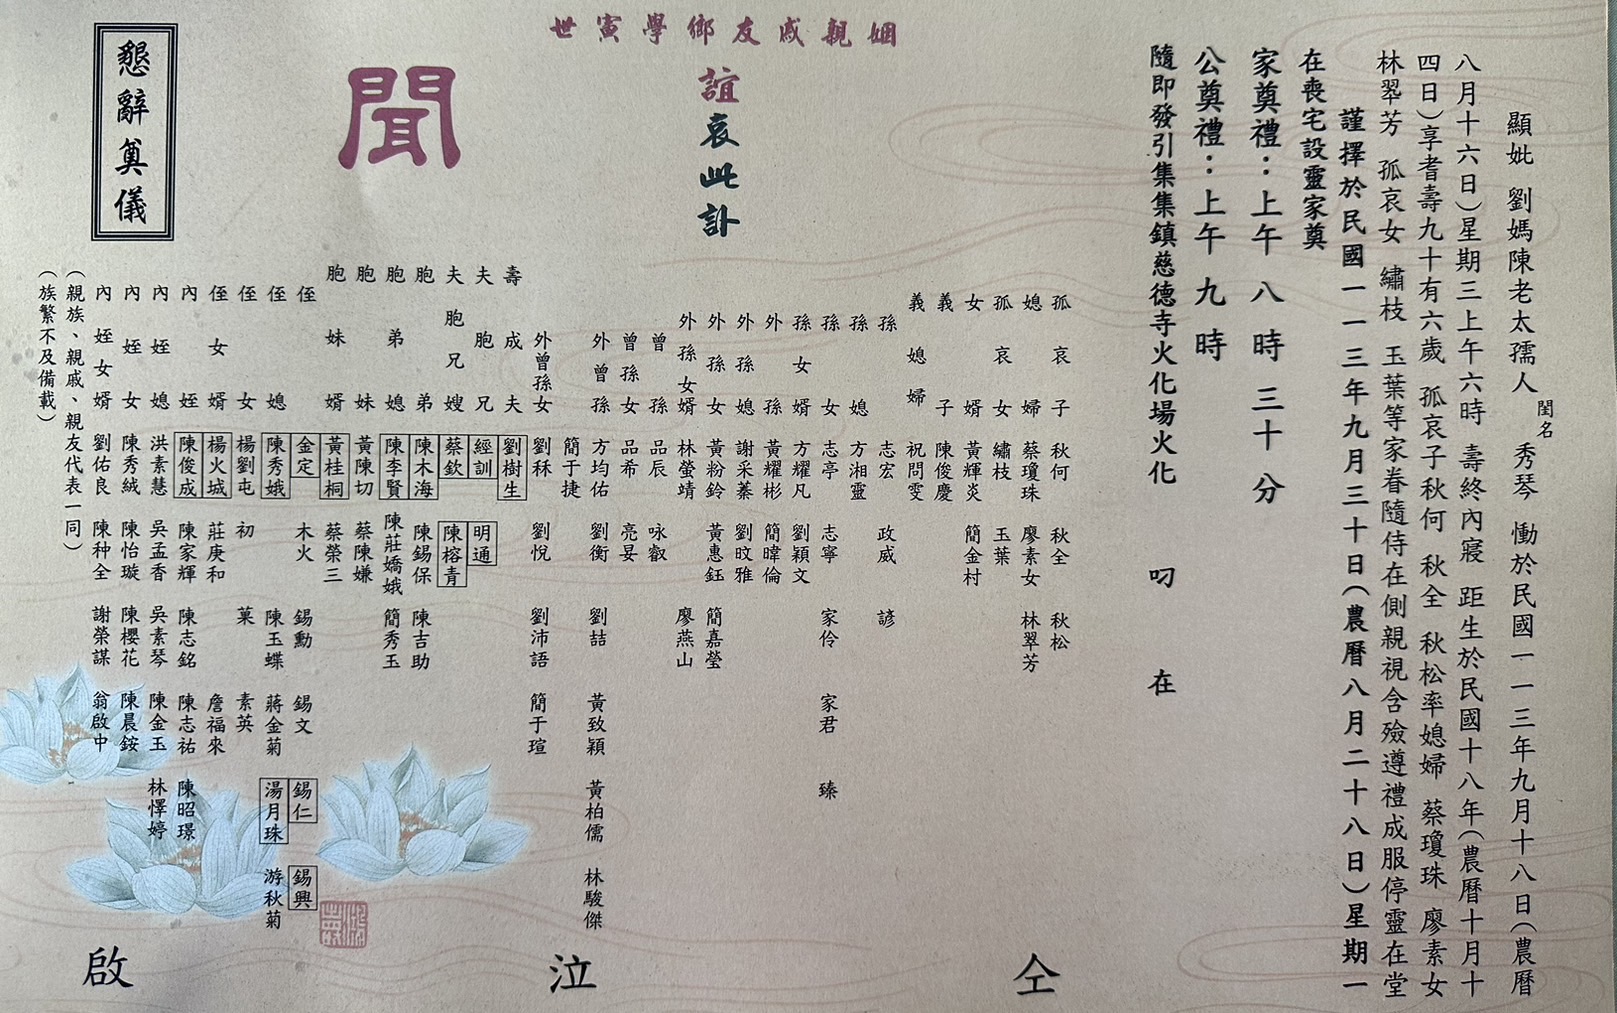 顯妣 劉媽陳老太孺人 閨名 秀琴 慟於民國一一三年九月十八日（農曆
八月十六日）星期三上午六時 壽終內寢 距生於民國十八年（農曆十月十
四日）享耆壽九十有六歲 孤哀子秋何 秋全 秋松率媳婦 蔡瓊珠 廖素女
林翠芳 孤哀女 繡枝 玉葉等家眷隨侍在側親視含殮遵禮成服停靈在堂
謹擇於民國一一三年九月三十日（農曆八月二十八日）星期一
在喪宅設靈家奠
家奠禮：上午 八 時 三十 分
公奠禮：上午 九 時
隨即發引集集鎮慈德寺火化場火化 叨 在
姻親戚友鄉學寅世
誼哀此訃
聞
孤哀子 秋何 秋全 秋松
媳婦 蔡瓊珠 廖素女 林翠芳
孤哀女 繡枝 玉葉
女婿 黃輝炎 簡金村
義子 陳俊慶
義媳婦 祝問雯
孫 志宏 政威 諺
孫媳 方湘靈
孫女 志亭 志寧 家伶 家君 臻
孫女婿 方耀凡 劉穎文
外孫 黃耀彬 簡暐倫
外孫媳 謝采蓁 劉旼雅
外孫女 黃粉鈴 黃惠鈺 簡嘉瑩
外孫女婿 林螢靖 廖燕山
曾孫 品辰 咏叡
曾孫女 品希 亮妟
外曾孫 方均佑 劉衡 劉喆 黃致穎 黃柏儒 林駿傑
簡于捷
外曾孫女 劉秝 劉悅 劉沛語 簡于瑄
壽成夫 劉樹生
夫胞兄 經訓 明通
夫胞兄嫂 蔡欽 陳榕青
胞弟 陳木海 陳錫保 陳吉助
胞弟媳 陳李賢 陳莊嬌娥 簡秀玉
胞妹 黃陳切 蔡陳嫌
胞妹婿 黃桂桐 蔡榮三
侄 金定 木火 錫勳 錫文 錫仁 錫興
侄媳 陳秀娥 陳玉蝶 蔣金菊 湯月珠 游秋菊
侄女 楊劉屯 初 菓 素英
侄女婿 楊火城 莊庚和 詹福來
內姪 陳俊成 陳家輝 陳志銘 陳志祐 陳昭璟
內姪媳 洪素慧 吳孟香 吳素琴 陳金玉 林懌婷
內姪女 陳秀絨 陳怡璇 陳櫻花 陳晨銨
內姪女婿 劉佑良 陳种全 謝榮謀 翁啟中
（親族、親戚、親友代表一同）
（族繁不及備載）
仝 泣 啟
懇辭奠儀